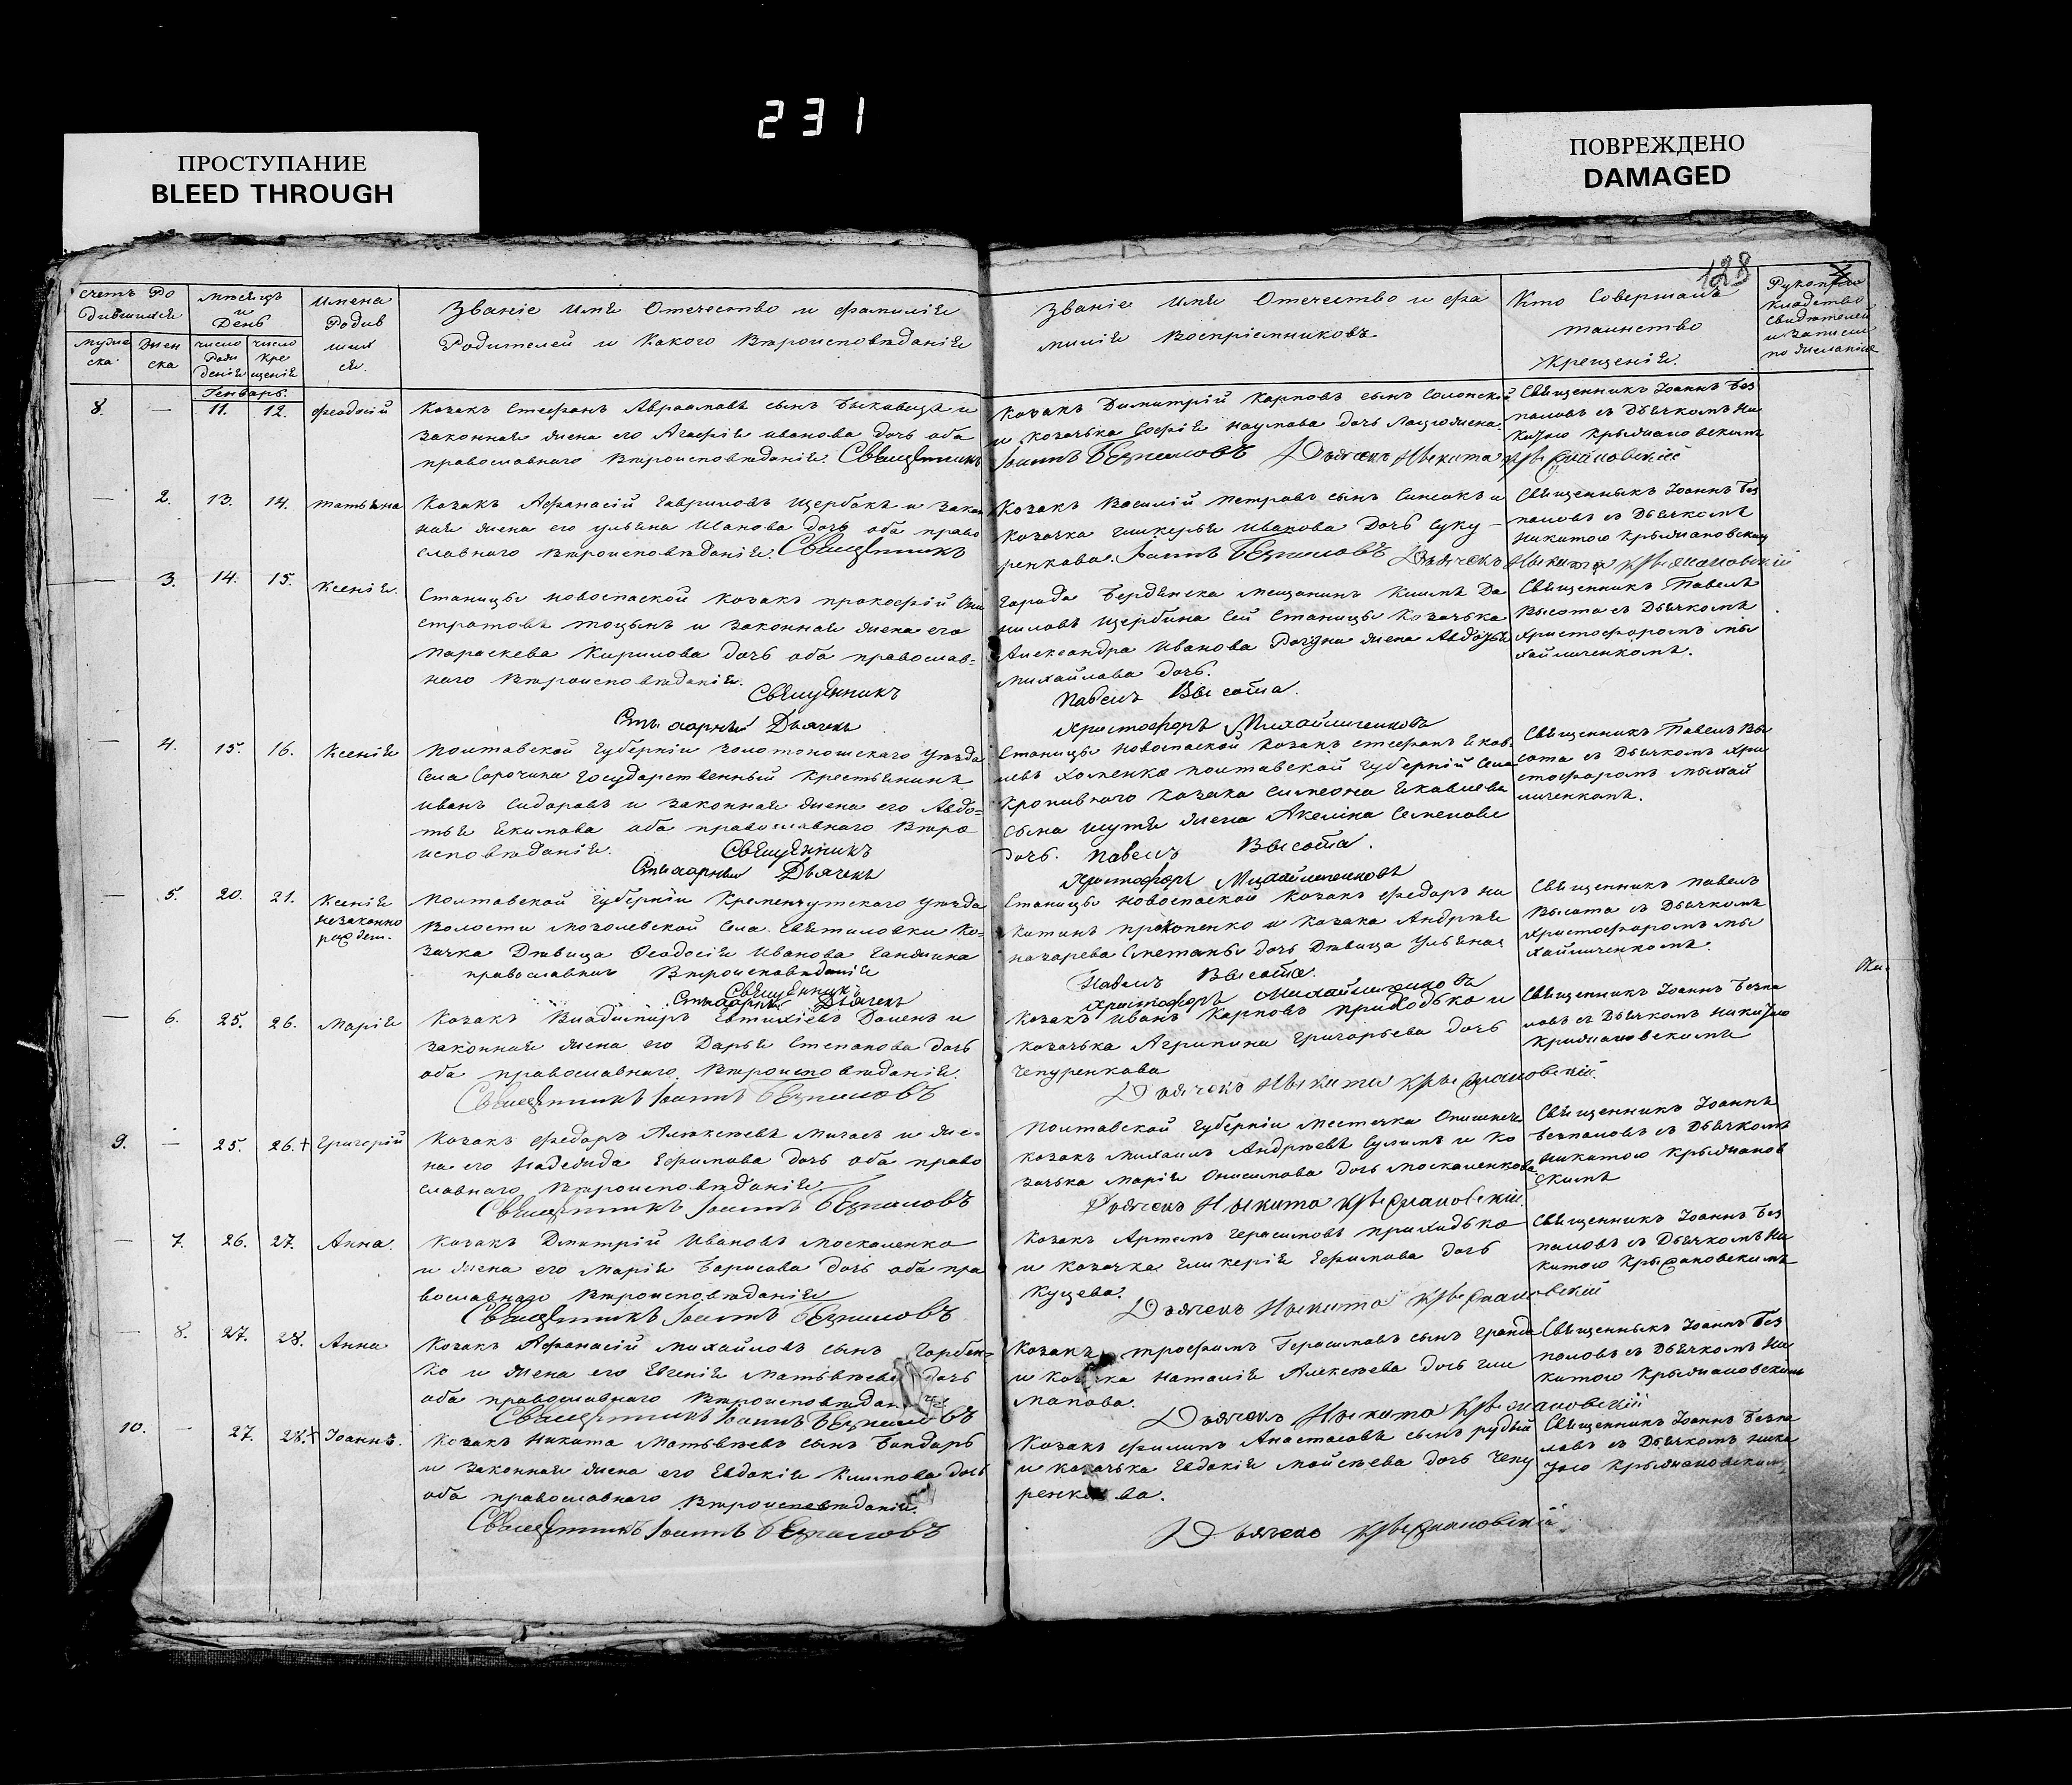 231
ПРОСТУПАНИЕ
BLEED THROUGH
ПОВРЕЖДЕНО
DAMAGED
128
счетъ Ро
дившихся
мѣсяцъ
и
День
Имена
Родив
ших
ся.
Званіе Имя Отечество и фамилія
Родителей и Какого Вѣроисповѣданія
Званіе Имя Отечество и фа
милія Воспріемниковъ
Кто Совершалъ
таинство
Крещенія.
Рукопри
кладство
свидѣтелей
и записи
по желанію
муже
ска.
Жен
ска
число
Рож
денія
число
Кре
щенія
Генварь.
8. — 11. 12. феодосій
Козакъ Стефанъ Авраамовъ сынъ и
законная жена его Агафія иванова дочь оба
православнаго Вѣроисповѣданія. Священникъ
Козакъ Димитрій Карповъ сынъ
и козачька Софія наумова дочь
Іоаннъ Безпаловъ Дьячекъ Никита Крыжановскій
Священникъ Іоаннъ Без
паловъ съ Дьячкомъ Ни
китою Крыжановскимъ
— 2. 13. 14. татьяна
Козакъ Афанасій гавриловъ щербакъ и закон
ная жена его ульяна Иванова дочь оба право
славнаго Вѣроисповѣданія. Священникъ
Козакъ Василій петровъ сынъ и
козачка гликерья Иванова дочь Суку-
ренкова. Іоаннъ Безпаловъ Дьячекъ Никита Крыжановскій
Священникъ Іоаннъ Без
паловъ съ Дьячкомъ
никитою Крыжановским
— 3. 14. 15. Ксенія.
Станицы новоспаской козакъ прокофій
и законная жена его
параскева Кирилова дочь оба православ=
наго Вѣроисповѣданія.
Священникъ
Дьячекъ
города Бердянска мещанинъ Климъ Да
ниловъ щербина сей Станицы Козачька
Александра Иванова жена Авдотья
михайлова дочь.
Павелъ Высота.
Христофоръ Михайличенковъ
Священникъ Павелъ
Высота съ Дьячкомъ
христофоромъ мы
хайличенкомъ.
— 4. 15. 16. Ксенія
полтавской губерніи золотоношскаго уѣзда
Села Сорочина государственный крестьянинъ
иванъ Сидоровъ и законная жена его Авдо=
тья Екимова оба православнаго Вѣро
исповѣданія. Священникъ
Дьячекъ
Станицы новоспаской козакъ стефанъ Яков
левъ хоменко полтавской губерніи Села
Кропивнаго козака симеона Яковлева
сына жена Акелина Семенова
дочь. Павелъ Высота.
Христофоръ Михайличенковъ
Священникъ Павелъ Вы
сота съ Дьячкомъ хри
стофоромъ мыхай
личенкомъ.
— 5. 20. 21. Ксенія
незаконно
рожден.
полтавской губерніи Кременчутскаго уѣзда
Волости Села Святиловки Ко=
зачка Дѣвица Феодосія Иванова
православнаго Вѣроисповѣданія
Священникъ
Дьячекъ
Станицы новоспаской козакъ федоръ
прокопенко и козака Андрѣя
дочь Дѣвица Ульяна
Павелъ Высота.
Христофоръ Михайличенковъ
Священникъ павелъ
Высота съ Дьячкомъ
христофоромъ мы
хайличенкомъ.
— 6. 25. 26. Марія
Козакъ Владимиръ Евтихіевъ и
законная жена его Дарья Степанова дочь
оба православнаго Вѣроисповѣданія.
Священникъ Іоаннъ Безпаловъ
козакъ Иванъ Карповъ приходько и
козачька Агрипина григорьева дочь
Чепуренкова
Дьячекъ Никита Крыжановскій.
Священникъ Іоаннъ Безпа
ловъ съ Дьячкомъ никитою
Крыжановскимъ
9. — 25. 26.+ Григорій
Козакъ федоръ Алексѣевъ и же-
на его Надежда Ефимова дочь оба право
славнаго Вѣроисповѣданія
Священникъ Іоаннъ Безпаловъ
полтавской губерніи местечка
козакъ михаилъ Андрѣевъ и ко
зачька марія Онисимова дочь москаленкова.
Дьячекъ Никита Крыжановскій.
Священникъ Іоаннъ
Безпаловъ съ Дьячкомъ
никитою Крыжанов
скимъ
— 7. 26. 27. Анна.
Козакъ Дмитрій Ивановъ москаленко
и жена его марія Борисова дочь оба пра
вославнаго Вѣроисповѣданія
Священникъ Іоаннъ Безпаловъ
Козакъ Артемъ Герасимовъ приходько
и козачка гликерія Ефимова дочь
Кущева.
Дьячекъ Никита Крыжановскій
Священникъ Іоаннъ Без
паловъ съ Дьячкомъ Ни
китою Крыжановскимъ
— 8. 27. 28. Анна
Козакъ Афанасій михайловъ сынъ горбен=
ко и жена его Евгенія матьвѣева дочь
оба православнаго Вѣроисповѣданія
Священникъ Іоаннъ Безпаловъ
Козакъ трофимъ Герасимовъ сынъ
и наталія Алексѣева дочь
Дьячекъ Никита Крыжановскій
Священникъ Іоаннъ Без
паловъ съ Дьячкомъ Ни
китою Крыжановскимъ
10. — 27. 28.+ Іоаннъ.
Козакъ Никита матьвѣевъ сынъ Бондарь
и законная жена его Евдокія Климова дочь
оба православнаго Вѣроисповѣданія.
Священникъ Іоаннъ Безпаловъ
Козакъ филипъ сынъ рудый
и козачька Евдокія мойсѣева дочь Чепу
ренкова.
Дьячекъ Крыжановскій
Священникъ Іоаннъ Безпа
ловъ съ Дьячкомъ ники
тою Крыжановским